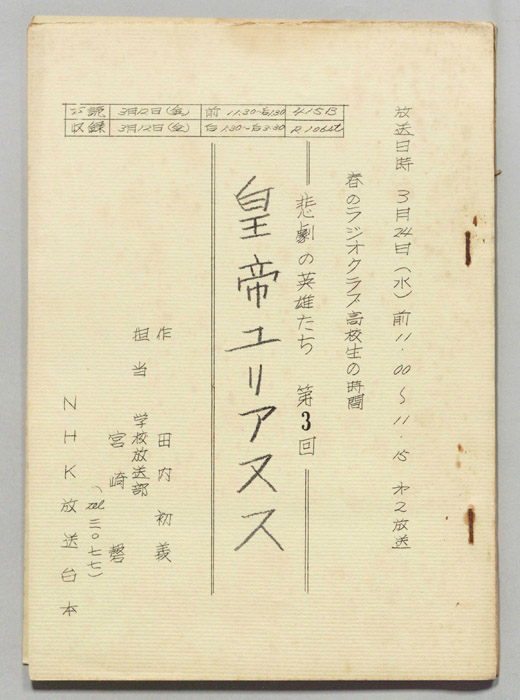 下読 3月12日(金) 前 11:30~后1:30 415B
収録 3月12日(金) 后 1:30~后3:30 R.106st
放送日時 3月24日(水)前11.00~11.15 オ2放送
春のラジオクラブ高校生の時間
悲劇の英雄たち 第3回
皇帝ユリアヌス
作 田内初義
担当 学校放送部
宮崎
(tel 三〇七七)
NHK放送台本